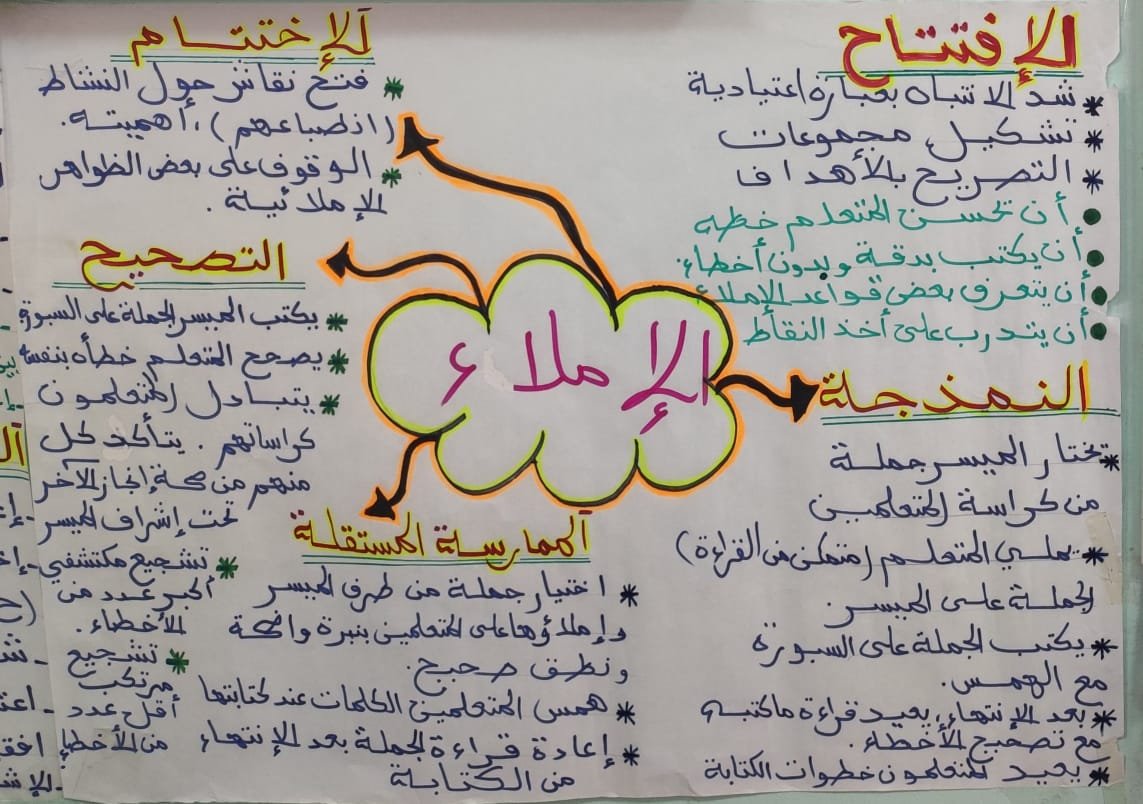 الإفتتاح
* شد الانتباه بعبارة اعتيادية
* تشكيل مجموعات
* التصريح بالأهداف
• أن تحسن المتعلم خطه
• أن يكتب بدقة وبدون أخطاء.
• أن يتعرف بعض قواعد الإملاء
• أن يتدرب على أخذ النقاط
النمذجة
* تختار الميسر جملة
من كراسة المتعلمين
* يملي المتعلم (متمكن من القراءة)
الجملة على الميسر.
* يكتب الجملة على السبورة
مع الهمس.
* بعد الإنتهاء، يعيد قراءة ماكتبه
مع تصحيح الأخطاء.
* يعيد المتعلمون خطوات الكتابة
الإملاء
الممارسة المستقلة
* اختيار جملة من طرف الميسر
وإملاؤها على المتعلمين بنبرة واضحة
ونطق صحيح.
* همس المتعلمين الكلمات عند كتابتها
* إعادة قراءة الجملة بعد الإنتهاء
من الكتابة
التصحيح
* يكتب الميسر الجملة على السبورة
* يصحح المتعلم خطأه بنفسه
* يتبادل المتعلمون
كراساتهم. يتأكد كل
منهم من صحة إنجاز الآخر
تحت إشراف الميسر
* تشجيع مكتشفي
أكبر عدد من
الأخطاء.
* تشجيع
مرتكب
أقل عدد
من الأخطاء
الإختتام
* فتح نقاش حول النشاط
(انطباعهم)، أهميته.
* الوقوف على بعض الظواهر
الإملائية.